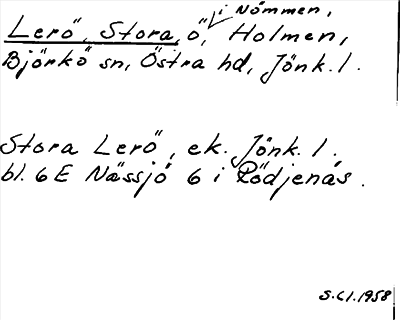 Lerö, Stora, ö, i Nömmen, Holmen,
Björkö sn, Östra hd, Jönk. l.
Stora Lerö, ek. Jönk. l.
bl. 6 E Nässjö 6 i Rödjenäs.
S.Cl. 1958